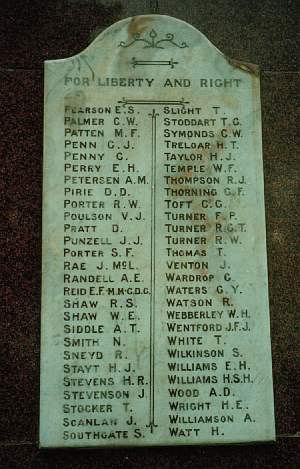 FOR LIBERTY AND RIGHT
PEARSON E.S.
PALMER C.W.
PATTEN M.F.
PENN C.J.
PENNY C.
PERRY E.H.
PETERSEN A.M.
PIRIE D.D.
PORTER R.W.
POULSON V.J.
PRATT D.
PUNZELL J.J.
PORTER S.F.
RAE J. McL.
RANDELL A.E.
REID E.F. M.M. C.D.G.
SHAW R.S.
SHAW W.E.
SIDDLE A.T.
SMITH N.
SNEYD R.
STAYT H.J.
STEVENS H.R.
STEVENSON J.
STOCKER T.
SCANLAN J.
SOUTHGATE S.
SLIGHT T.
STODDART T.G.
SYMONDS C.W.
TRELOAR H.T.
TAYLOR H.J.
TEMPLE W.F.
THOMPSON R.J.
THORNING G.F.
TOFT C.G.
TURNER F.P.
TURNER R.C.T.
TURNER R.W.
THOMAS T.
VENTON J.
WARDROP G.
WATERS G.Y.
WATSON R.
WEBBERLEY W.H.
WENTFORD J.F.J.
WHITE T.
WILKINSON S.
WILLIAMS E.H.
WILLIAMS H.S.H.
WOOD A.D.
WRIGHT H.E.
WILLIAMSON A.
WATT H.